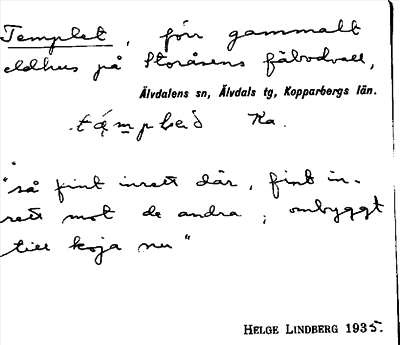 Templet, förr gammalt
eldhus på Storåsens fäbodvall,
Älvdalens sn, Älvdals tg, Kopparbergs län.
Ka.
"så fint inrett där, fint in-
rett mot de andra; ombyggt
till koja nu"
HELGE LINDBERG 1935.